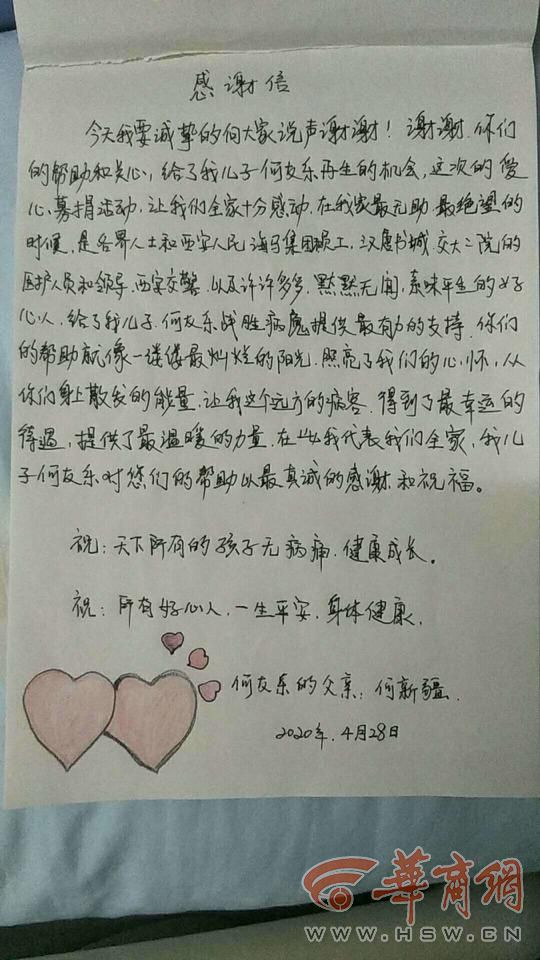 感谢信
今天我要诚挚的向大家说声谢谢！谢谢.你们
的帮助和关心，给了我儿子何友乐再生的机会，这次的爱
心募捐活动，让我们全家十分感动.在我家最无助.最绝望的
时候，是各界人士和西安人民.海马集团员工，汉唐书城，交大二院的
医护人员和领导，西安交警.以及许许多多.默默无闻，素昧平生的好
心人，给了我儿子.何友乐战胜病魔提供最有力的支持.你们
的帮助就像一缕缕最灿烂的阳光.照亮了我们的心怀，从
你们身上散发的能量.让我这个远方的病客.得到了最幸运的
待遇，提供了最温暖的力量.在此我代表我们全家，我儿
子何友乐对您们的帮助以最真诚的感谢和祝福。
祝：天下所有的孩子无病痛.健康成长。
祝：所有好心人，一生平安.身体健康.
何友乐的父亲：何新疆.
2020年.4月28日
华商网
WWW.HSW.CN